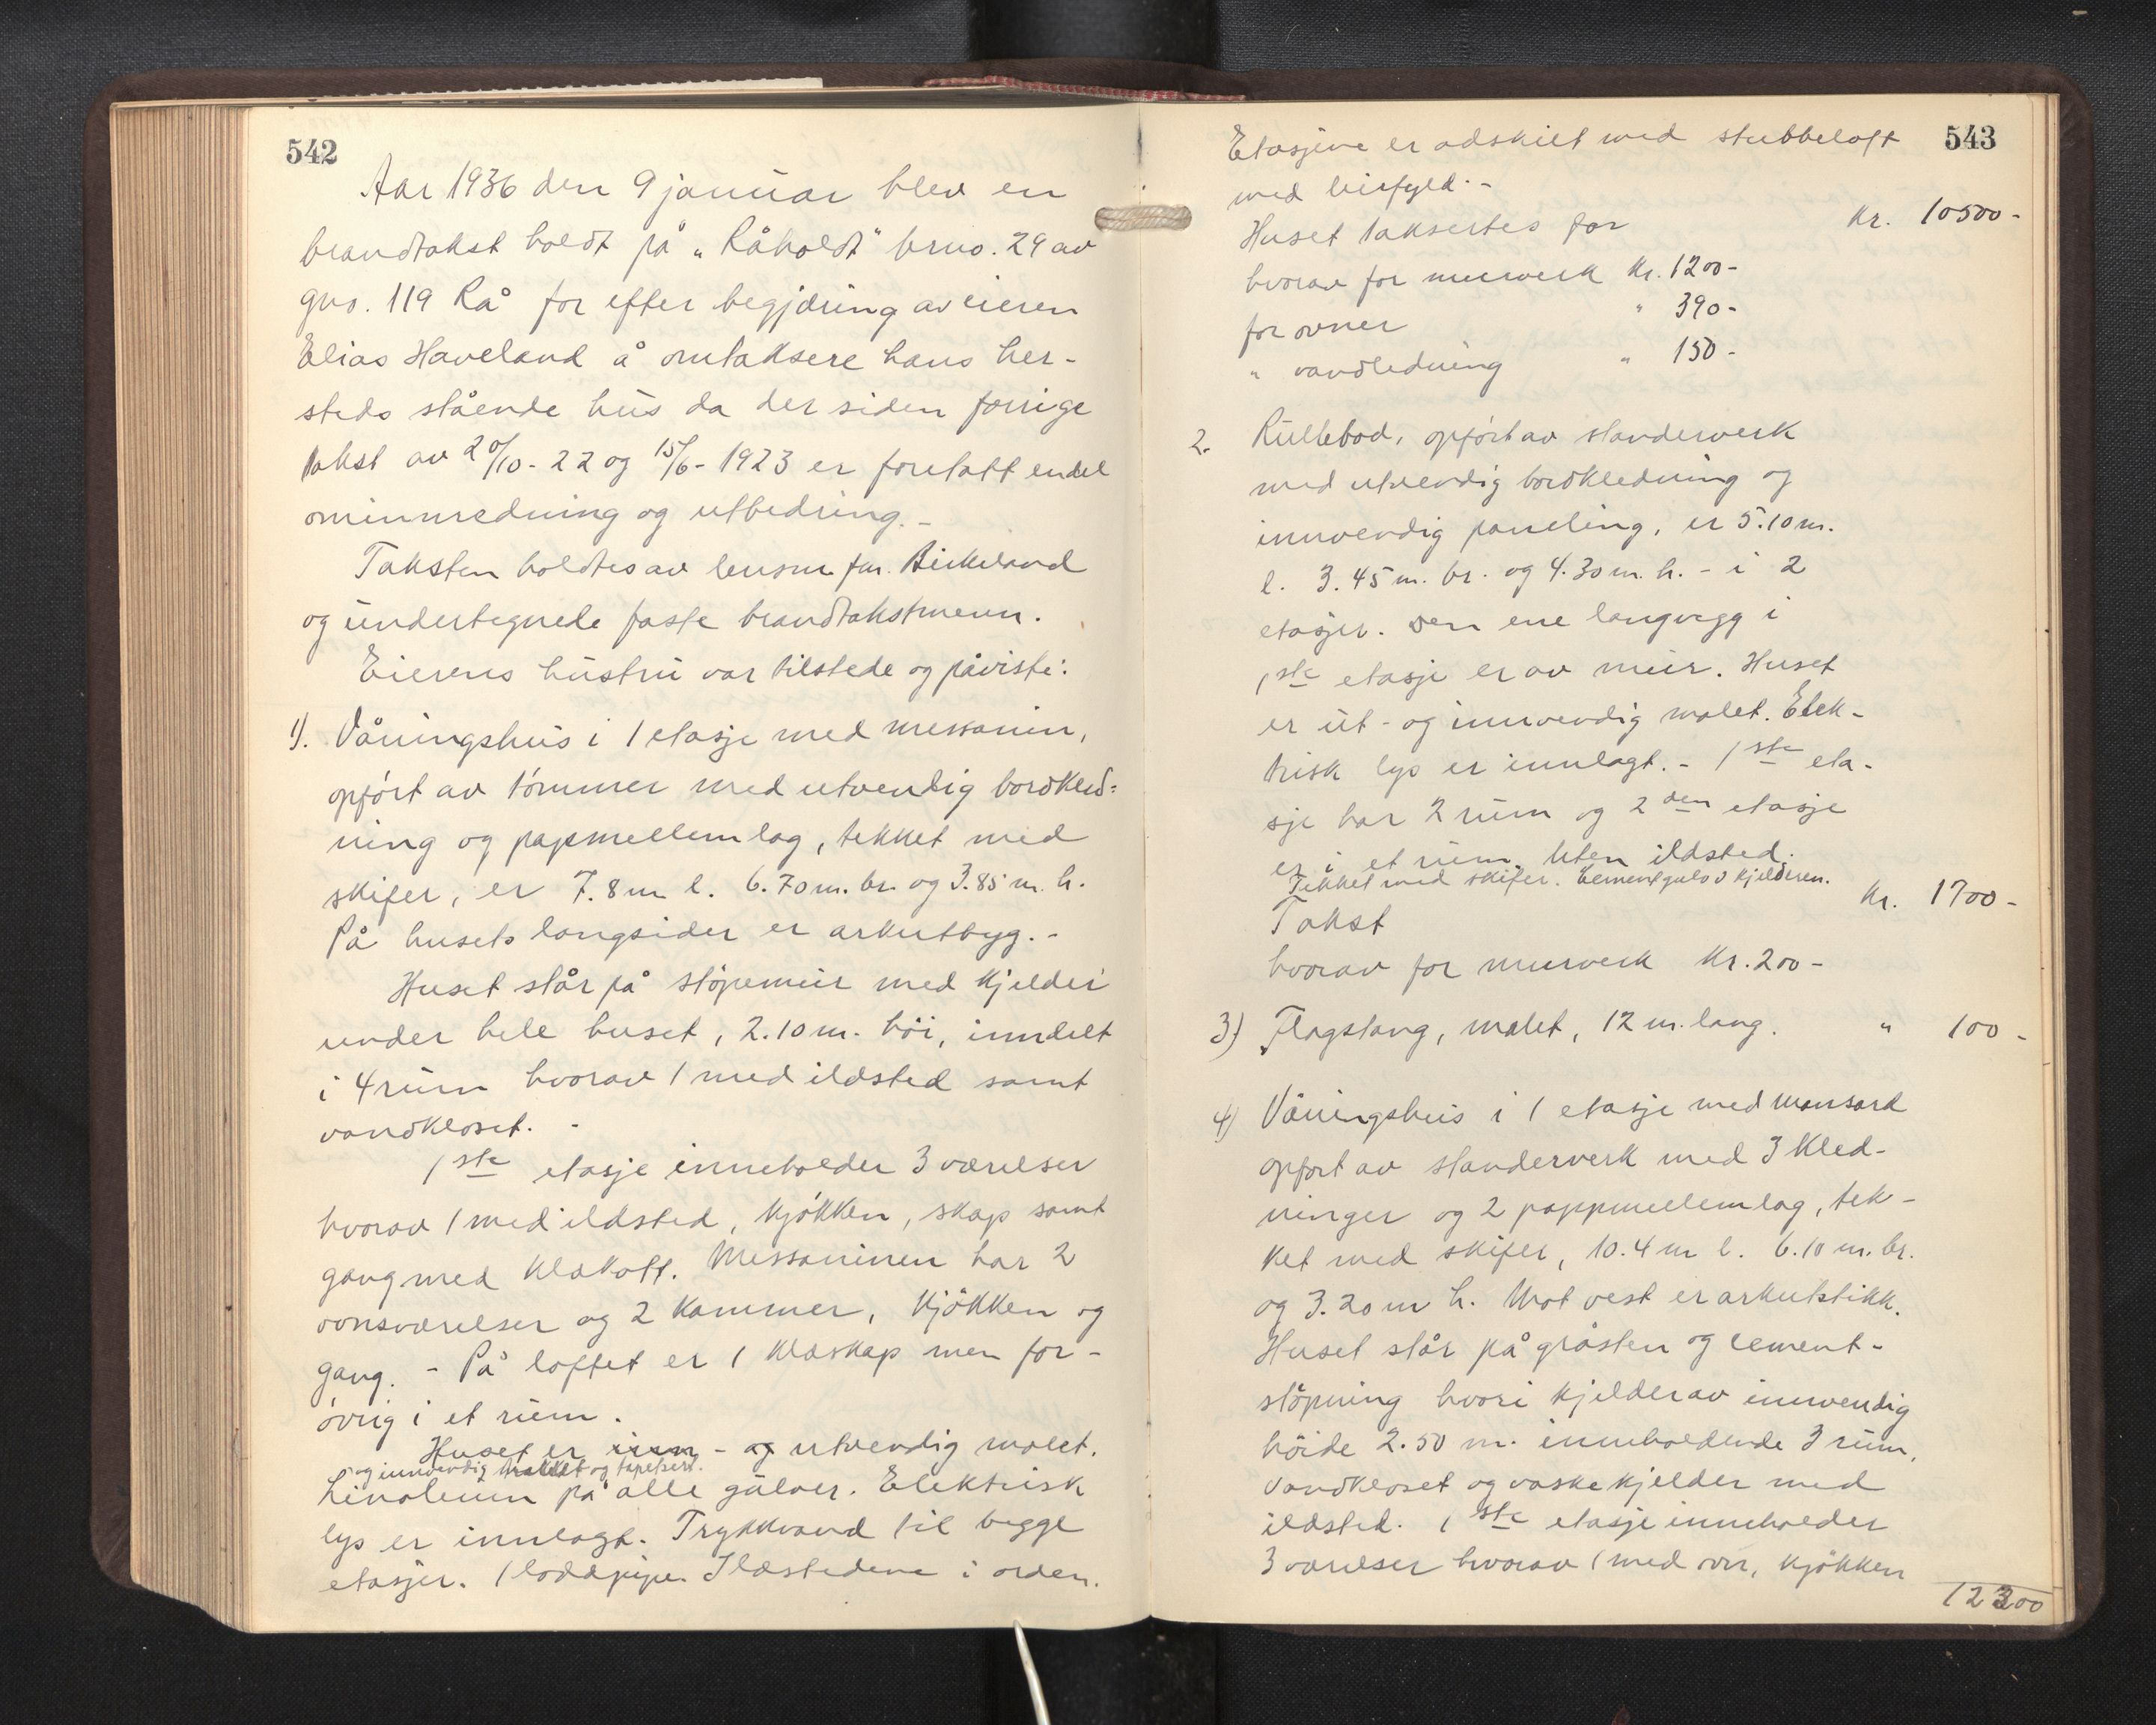 542
Aar 1936 den 9 januar blev en
brandtakst holdt på "Råholdt" brno. 29 av
gno. 119 Rå for efter begjæring av eieren
Elias Haveland å omtaksere hans her-
steds stående hus da der siden forrige
takst av 20/10-22 og 15/6-1923 er foretatt endel
ominnredning og utbedring.-
Taksten holdtes av lensm fm. Birkeland
og undertegnede faste brandtakstmenn.
Eierens hustru var tilstede og påviste:
1). Våningshus i 1 etasje med messanin,
opført av tømmer med utvendig bordkled=
ning og papmellemlag, tekket med
skifer, er 7.8 m l. 6.70 m. br. og 3.85 m. h.
På husets langsider er arkutbyg.-
Huset står på støpemur med kjelder
under hele huset, 2.10 m. høi, inndelt
i 4 rum hvorav 1 med ildsted samt
vandkloset. -
1ste etasje inneholder 3 værelser
hvorav 1 med ildsted, kjøkken, skap samt
gang med klækott. Messaninen har 2
ovnsværelser og 2 kammer, kjøkken og
gang. - På loftet er 1 klæskap men for-
øvrig i et rum.
Huset er inn - og utvendig malet.
og innvendig trukket og tapetsert.
Linoleum på alle gulver. Elektrisk
lys er innlagt. Trykkvand til begge
etasjer. 1 loddpipe. Ildstedene i orden.
543
Etasjene er adskilt med stubbeloft
med leirfyld.-
Huset taksertes for kr. 10500-
hvorav for murverk kr. 1200-
for ovner " 390-
" vandledning " 150-
2. Rullebod, opført av standerverk
med utvendig bordkledning og
innvendig paneling, er 5.10 m.
l. 3.45 m. br. og 4.30 m. h. - i 2
etasjer. Den ene langvegg i
1ste etasje er av mur. Huset
er ut - og innvendig malet. Elek-
trisk lys er innlagt.- 1ste eta-
sje har 2 rum og 2den etasje
er i et rum. Uten ildsted.
Tekket med skifer. Cementgulv i kjelderen.
Takst kr. 1700-
hvorav for murverk kr. 200-
3) Flagstang, malet, 12 m. lang. " 100-
4) Våningshus i 1 etasje med mansard
opført av standerverk med 3 kled-
ninger og 2 pappmellemlag, tek-
ket med skifer, 10.4 m l. 6.10 m. br.
og 3.20 m h. Mot vest er arkutstikk.
Huset står på gråsten og cement-
støpning hvori kjelder av innvendig
høide 2.50 m. inneholdende 3 rum,
vandkloset og vaskekjelder med
ildsted. 1ste etasje inneholder
3 værelser hvorav 1 med ovn, kjøkken
12300